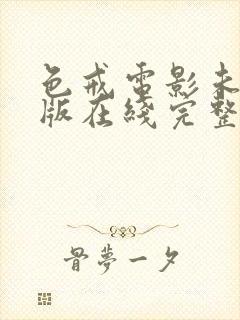 色戒電影未
版在綫完整
骨夢一夕